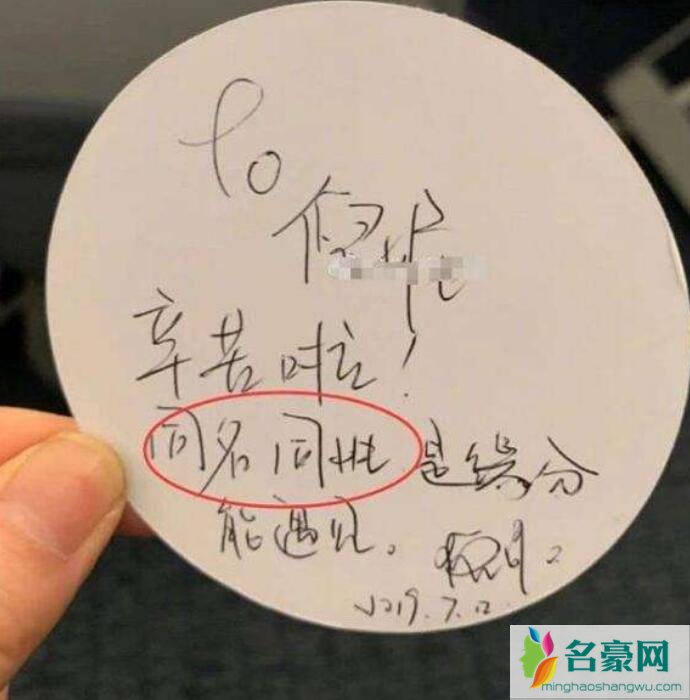 To
辛苦啦!
同名同姓 是缘分
能遇见。
2019.7.12.
名豪网
minghaoshangwu.com